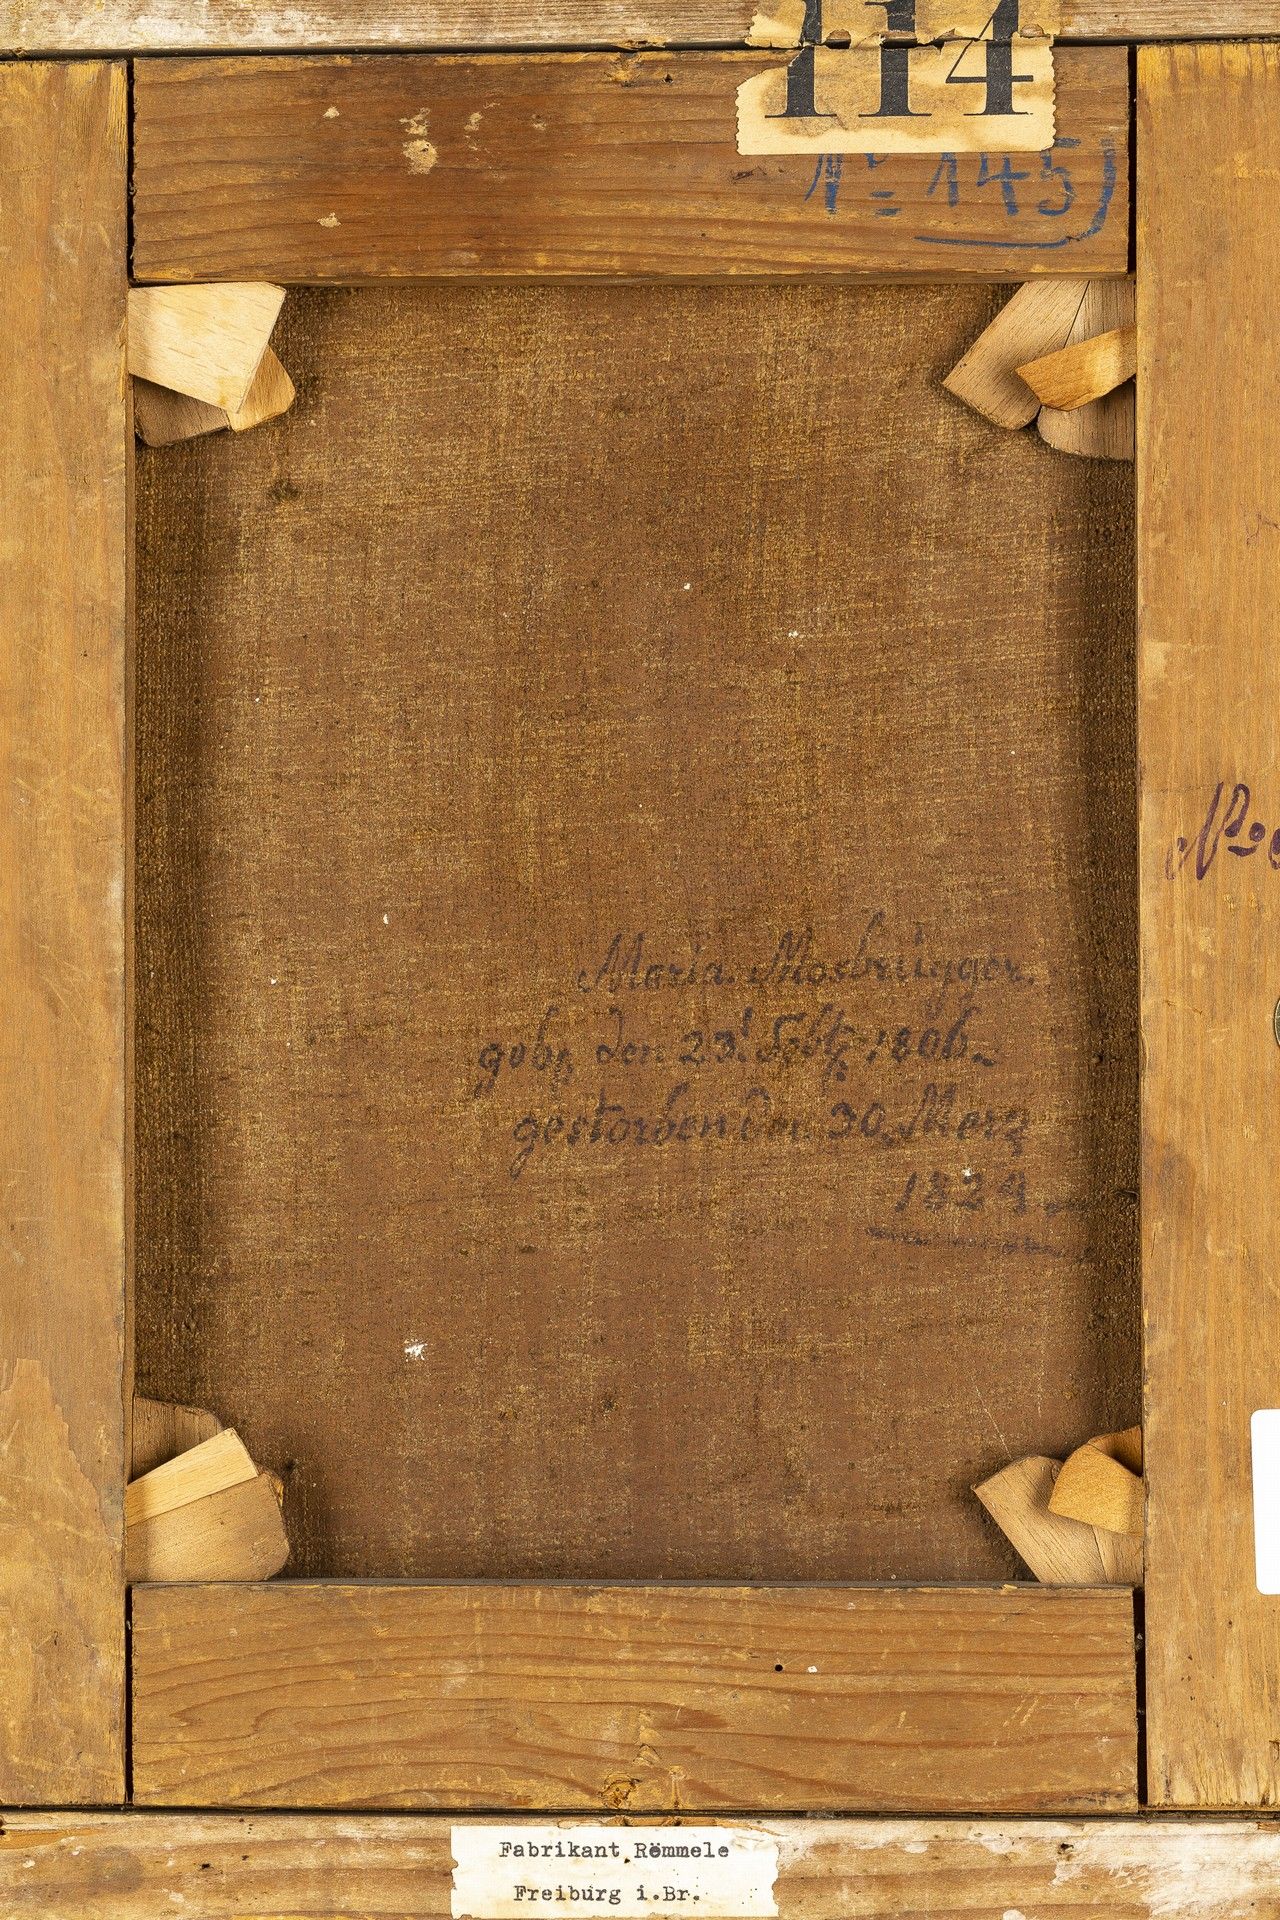 114
No 145
No
Maria Mosbrügger.
geb. den 23t 1806.
gestorben den 30. Merz
1829.
Fabrikant Römmele
Freiburg i.Br.